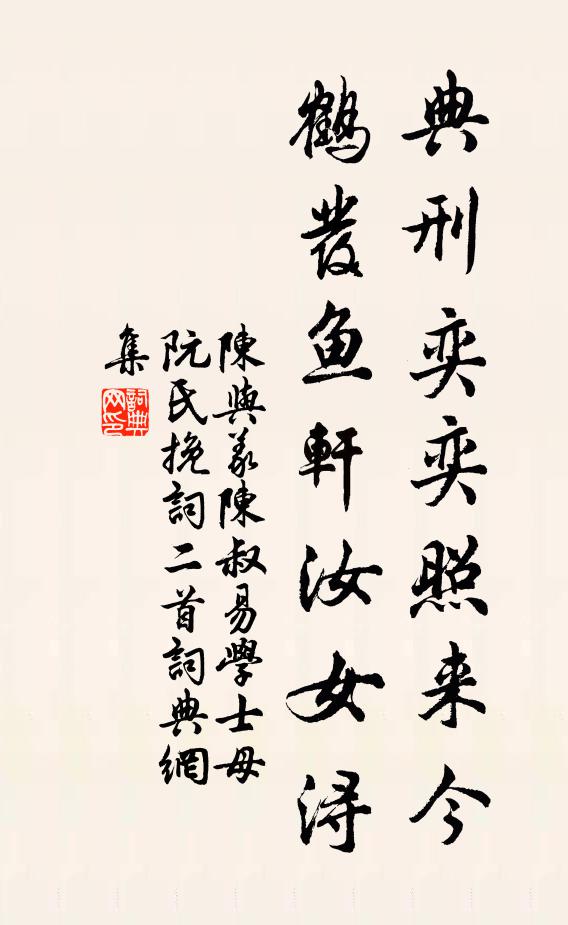 典刑奕奕照来今
鶴發鱼軒汝女浔
陳與義陳叔易學士母
阮氏挽詞二首詞典網
集
詞典
网印